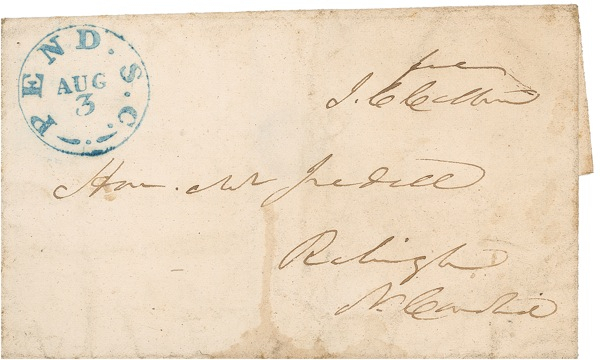 PEND. S. C.
AUG
3
free
J. C. Calhoun
Hon. Mr Iredell
Raleigh
N. Carolina